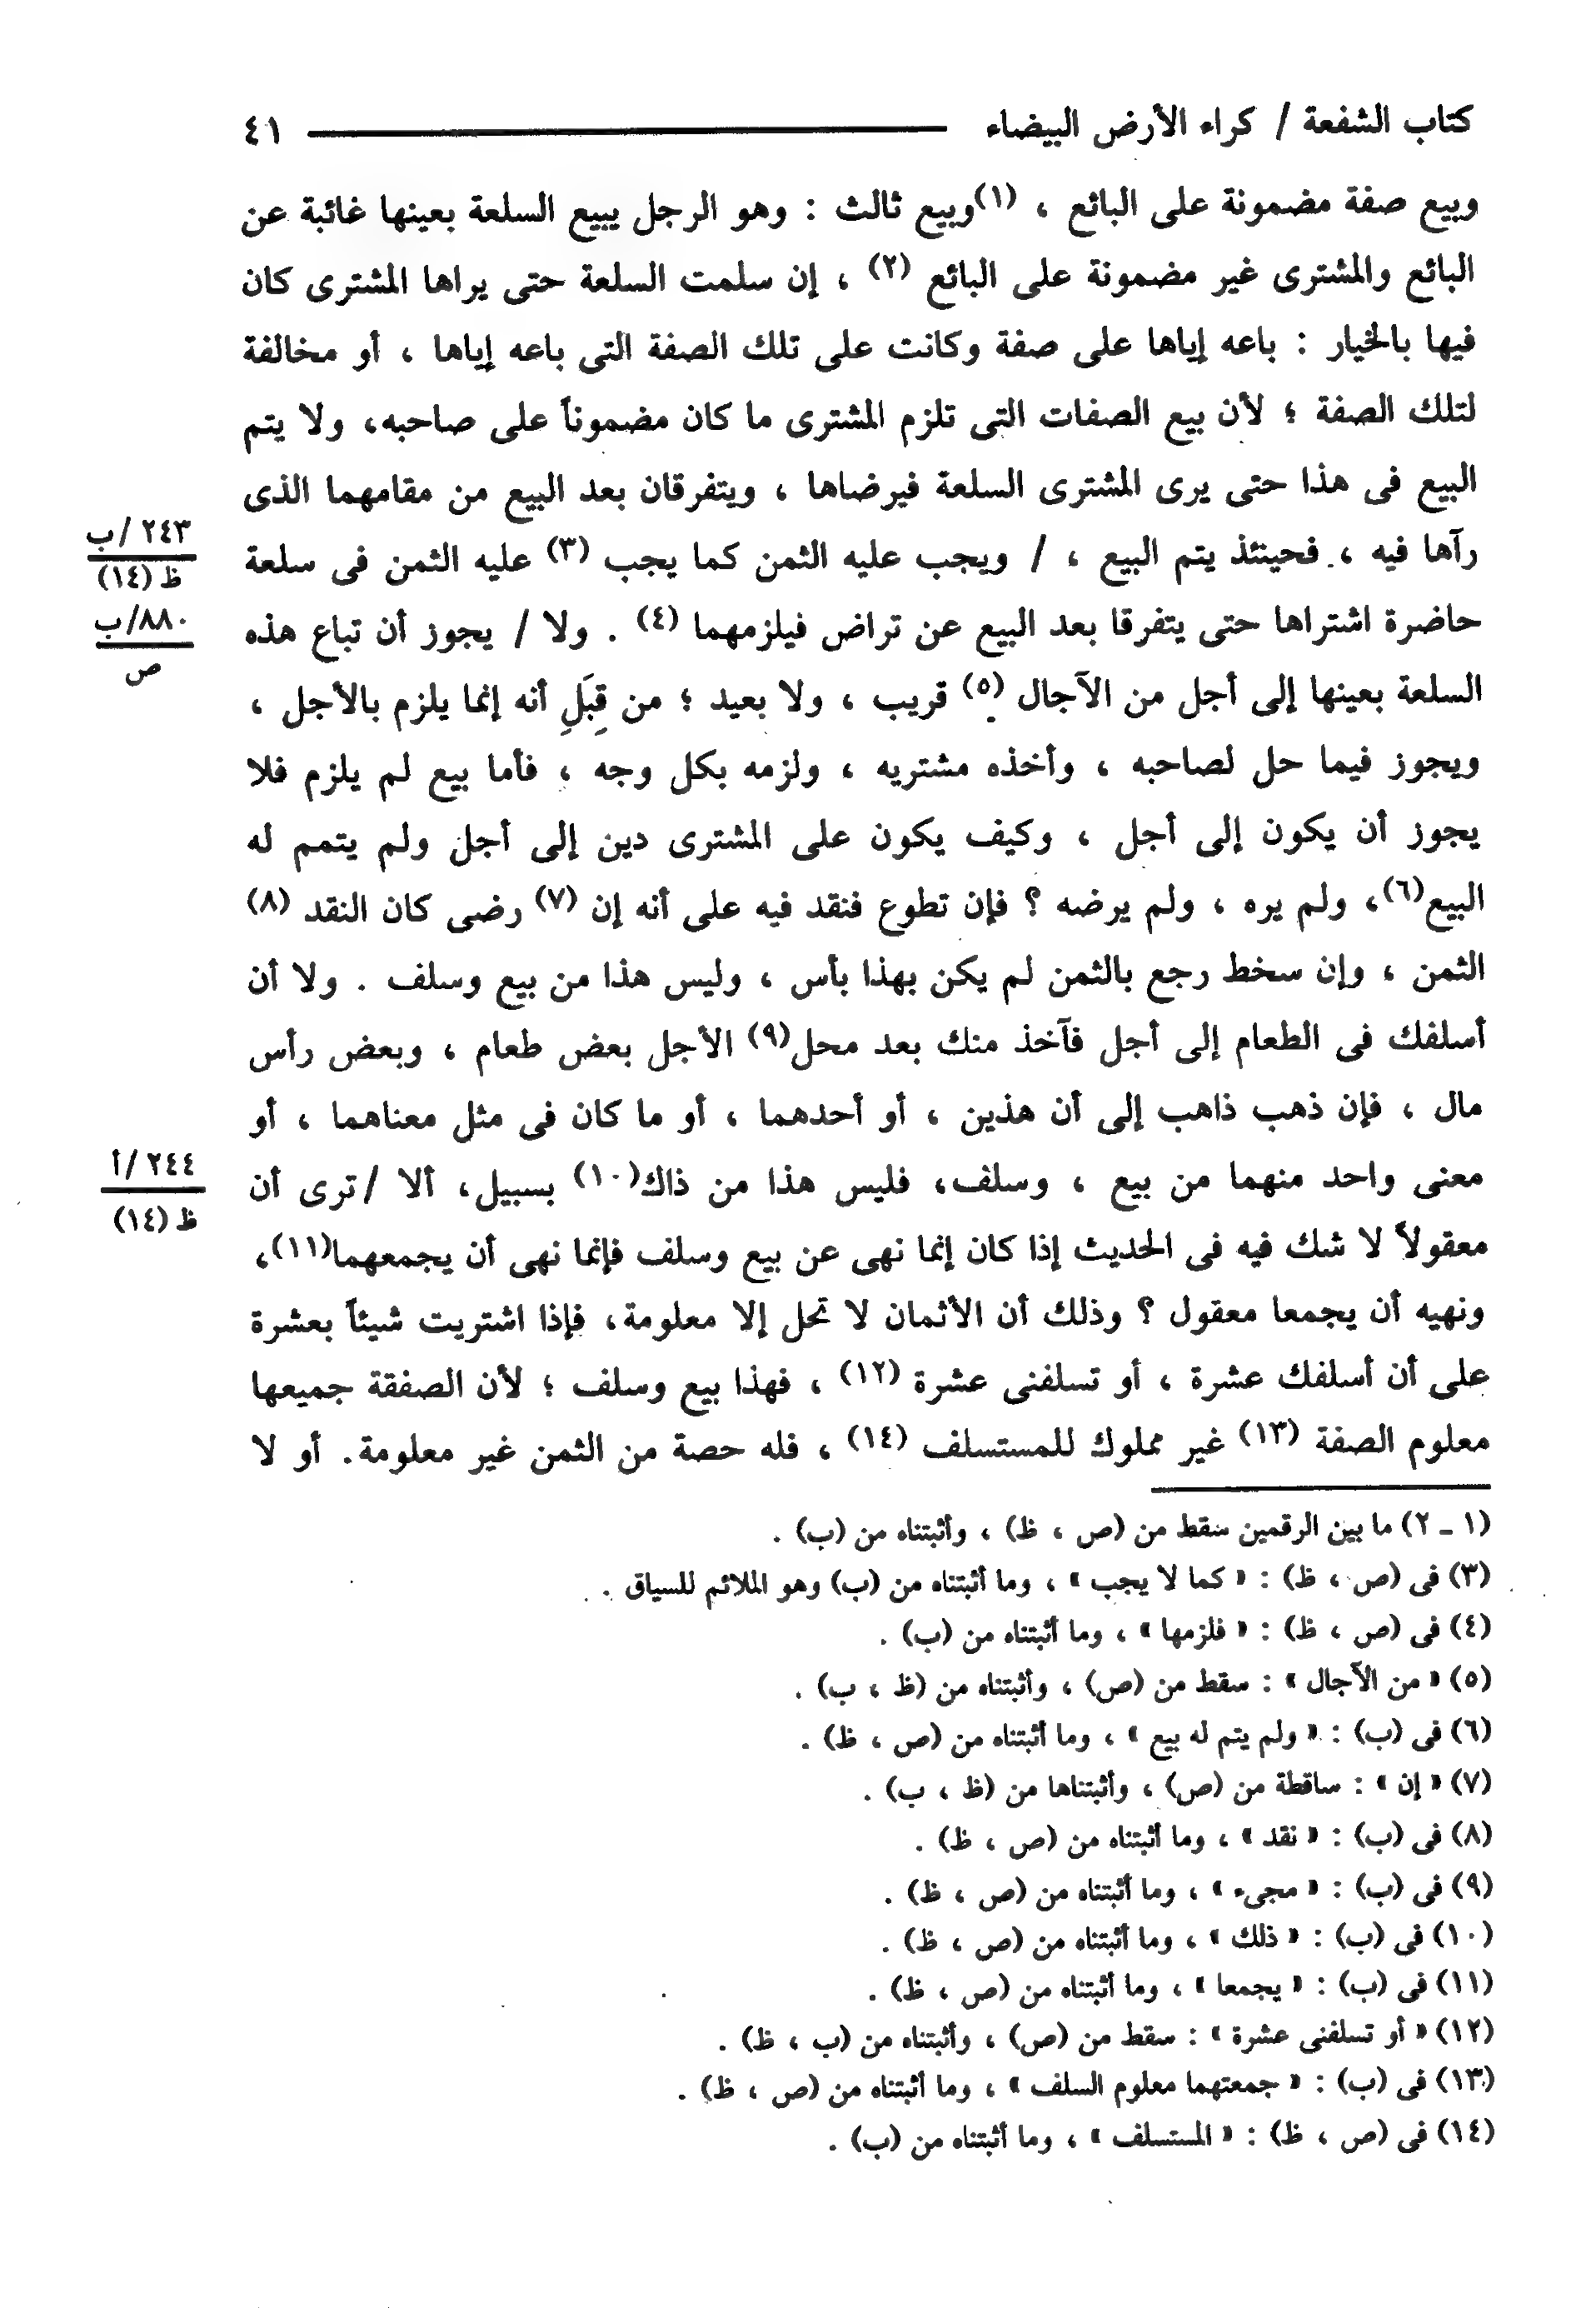 كتاب الشفعة / كراء الأرض البيضاء ٤١
وبيع صفة مضمونة على البائع ، (١)وبيع ثالث : وهو الرجل يبيع السلعة بعينها غائبة عن
البائع والمشترى غير مضمونة على البائع (٢) ، إن سلمت السلعة حتى يراها المشترى كان
فيها بالخيار : باعه إياها على صفة وكانت على تلك الصفة التى باعه إياها ، أو مخالفة
لتلك الصفة ؛ لأن بيع الصفات التى تلزم المشترى ما كان مضموناً على صاحبه، ولا يتم
البيع فى هذا حتى يرى المشترى السلعة فيرضاها ، ويتفرقان بعد البيع من مقامهما الذى
رآها فيه ، فحينئذ يتم البيع ، / ويجب عليه الثمن كما يجب (٣) عليه الثمن فى سلعة
٢٤٣ /ب
ظ (١٤)
حاضرة اشتراها حتى يتفرقا بعد البيع عن تراض فيلزمهما (٤) . ولا / يجوز أن تباع هذه
٨٨٠/ب
ص
السلعة بعينها إلى أجل من الآجال (٥) قريب ، ولا بعيد ؛ من قِبَلِ أنه إنما يلزم بالأجل ،
ويجوز فيما حل لصاحبه ، وأخذه مشتريه ، ولزمه بكل وجه ، فأما بيع لم يلزم فلا
يجوز أن يكون إلى أجل ، وكيف يكون على المشترى دين إلى أجل ولم يتمم له
البيع(٦)، ولم يره ، ولم يرضه ؟ فإن تطوع فنقد فيه على أنه إن (٧) رضى كان النقد (٨)
الثمن ، وإن سخط رجع بالثمن لم يكن بهذا بأس ، وليس هذا من بيع وسلف . ولا أن
أسلفك فى الطعام إلى أجل فآخذ منك بعد محل(٩) الأجل بعض طعام ، وبعض رأس
مال ، فإن ذهب ذاهب إلى أن هذين ، أو أحدهما ، أو ما كان فى مثل معناهما ، أو
معنى واحد منهما من بيع ، وسلف، فليس هذا من ذاك(١٠) بسبيل، ألا /ترى أن
٢٤٤ /أ
ظ (١٤)
معقولاً لا شك فيه فى الحديث إذا كان إنما نهى عن بيع وسلف فإنما نهى أن يجمعهما(١١)،
ونهيه أن يجمعا معقول ؟ وذلك أن الأثمان لا تحل إلا معلومة، فإذا اشتريت شيئاً بعشرة
على أن أسلفك عشرة ، أو تسلفنى عشرة (١٢) ، فهذا بيع وسلف ؛ لأن الصفقة جميعها
معلوم الصفة (١٣) غير مملوك للمستسلف (١٤) ، فله حصة من الثمن غير معلومة. أو لا
(١ ـ ٢) ما بين الرقمين سقط من (ص ، ظ) ، وأثبتناه من (ب) .
(٣) فى (ص ، ظ) : « كما لا يجب » ، وما أثبتناه من (ب) وهو الملائم للسياق .
(٤) فى (ص ، ظ) : « فلزمها » ، وما أثبتناه من (ب) .
(٥) « من الآجال » : سقط من (ص) ، وأثبتناه من (ظ ، ب) .
(٦) فى (ب) : « ولم يتم له بيع » ، وما أثبتناه من (ص ، ظ) .
(٧) « إن » : ساقطة من (ص) ، وأثبتناها من (ظ ، ب) .
(٨) فى (ب) : « نقد » ، وما أثبتناه من (ص ، ظ) .
(٩) فى (ب) : « مجىء » ، وما أثبتناه من (ص ، ظ) .
(١٠) فى (ب) : « ذلك » ، وما أثبتناه من (ص ، ظ) .
(١١) فى (ب) : « يجمعا » ، وما أثبتناه من (ص ، ظ) .
(١٢) « أو تسلفنى عشرة » : سقط من (ص) ، وأثبتناه من (ب ، ظ) .
(١٣) فى (ب) : « جمعتهما معلوم السلف » ، وما أثبتناه من (ص ، ظ) .
(١٤) فى (ص ، ظ) : « المستسلف » ، وما أثبتناه من (ب) .